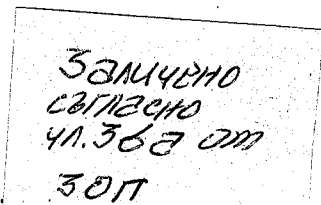 Заличено
съгласно
чл.36а от
ЗОП